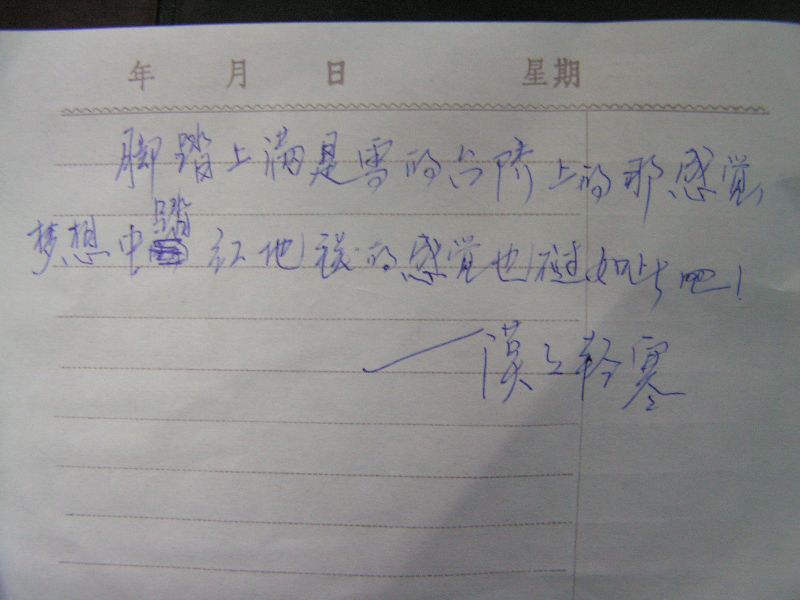 年 月 日 星期
脚踏上满是雪的台阶上的那感觉,
梦想中踏红地毯的感觉也碰如此吧!
——漠之轻寒